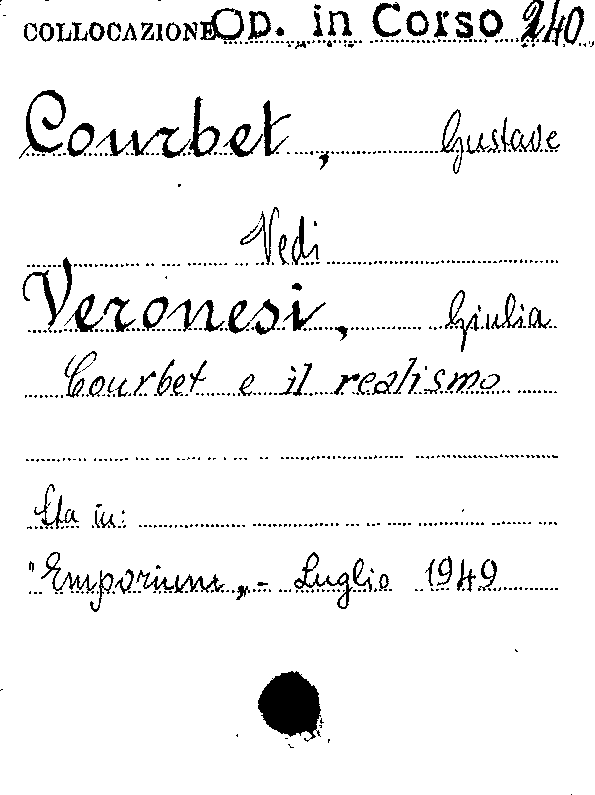 COLLOCAZIONE OP. in Corso 240
Courbet, Gustave
Vedi
Veronesi, Giulia
Courbet e il realismo
Sta in:
"Emporium„ - Luglio 1949